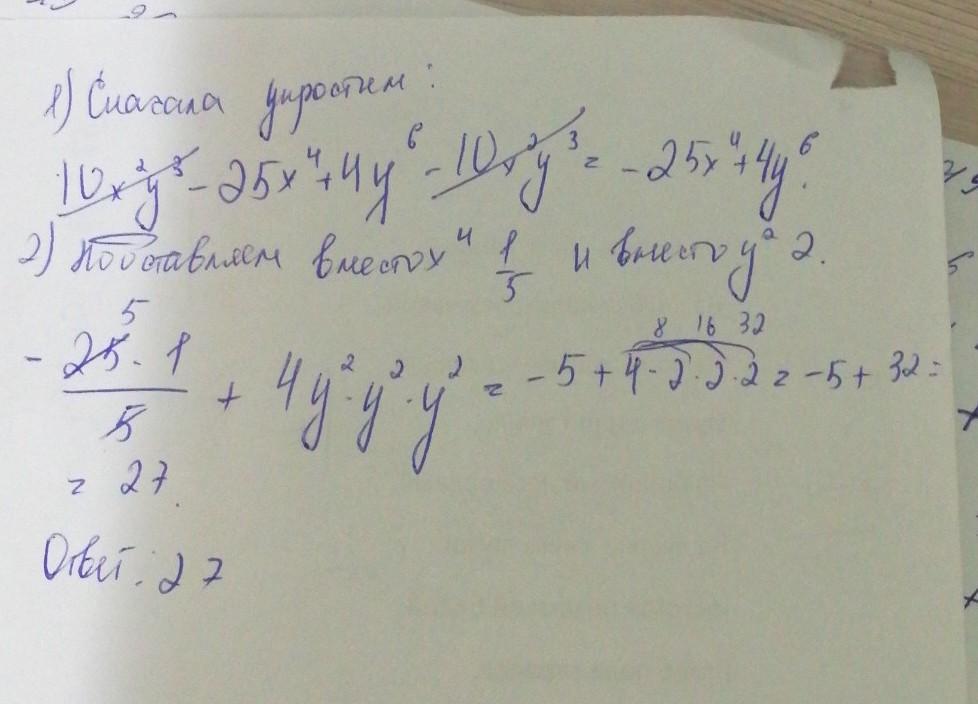 1) Сначала упростим:
10x²y³ - 25x⁴ + 4y⁶ - 10x²y³ = -25x⁴ + 4y⁶.
2) Подставляем вместо x⁴ 1/5 и вместо y² 2.
- 25 · 1 / 5 + 4y² · y² · y² = -5 + 4 · 2 · 2 · 2 = -5 + 32 =
= 27.
Ответ: 27